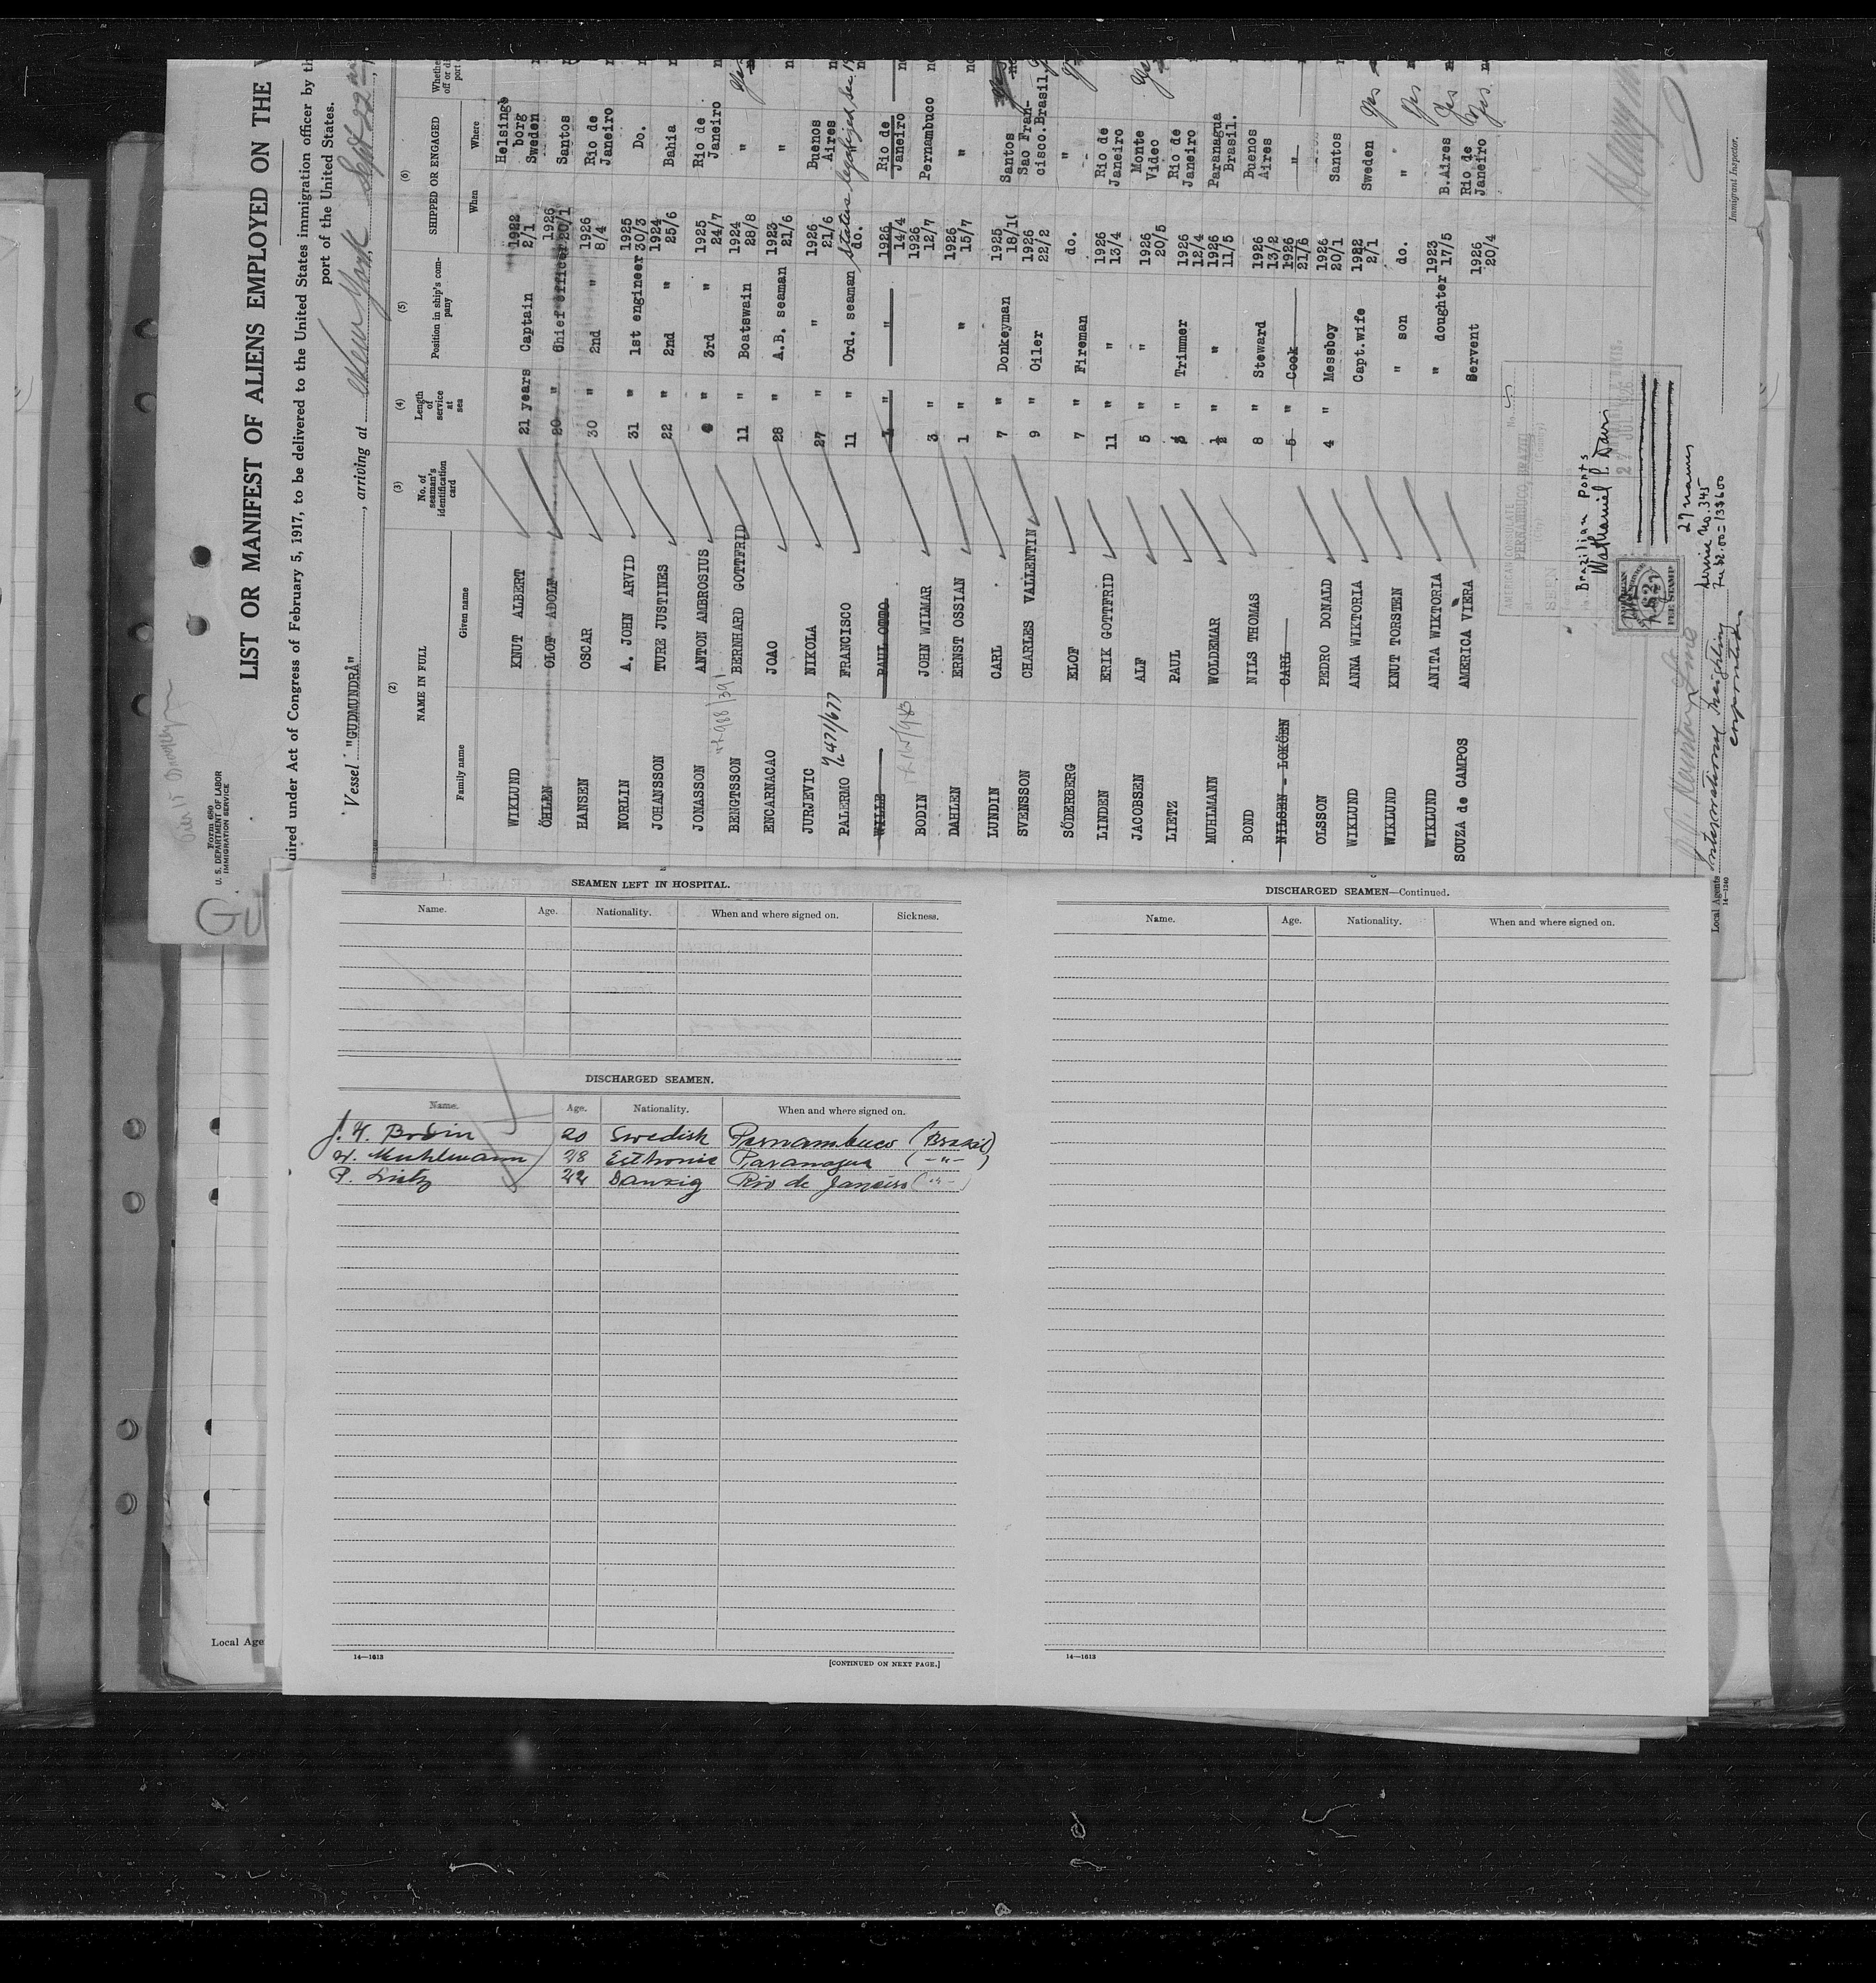 Form 680
U. S. DEPARTMENT OF LABOR
IMMIGRATION SERVICE
LIST OR MANIFEST OF ALIENS EMPLOYED ON THE
uired under Act of Congress of February 5, 1917, to be delivered to the United States immigration officer by th
port of the United States.
Vessel "GUDMUNDRÅ", arriving at New York Sept 22
(2) (3) (4) (5) (6)
NAME IN FULL No. of seaman's identification card Length of service at sea Position in ship's company SHIPPED OR ENGAGED
Family name Given name When Where
WIKLUND KNUT ALBERT 21 years Captain 1922 2/1 Helsingborg Sweden
ÖHLEN OLOF ADOLF 20 " Chief officer 1926 20/1 Santos
HANSEN OSCAR 30 " 2nd " 1926 8/4 Rio de Janeiro
NORLIN A. JOHN ARVID 31 " 1st engineer 1925 30/3 Do.
JOHANSSON TURE JUSTINES 22 " 2nd " 1924 25/6 Bahia
JONASSON ANTON AMBROSIUS " 3rd " 1925 24/7 Rio de Janeiro
BENGTSSON BERNHARD GOTTFRID 11 " Boatswain 1924 28/8 "
ENCARNACAO JOAO 28 " A.B. seaman 1923 21/6 "
JURJEVIC NIKOLA 27 " " 1926 21/6 Buenos Aires
PALERMO FRANCISCO 11 " Ord. seaman do.
WILLE PAUL OTTO 1 " " 1926 14/4 Rio de Janeiro
BODIN JOHN WILMAR 3 " 1926 12/7 Pernambuco
DAHLEN ERNST OSSIAN 1 " " 1926 15/7 "
LUNDIN CARL 7 " Donkeyman 1925 18/10 Santos
SVENSSON CHARLES VALLENTIN 9 " Oiler 1926 22/2 Sao Francisco.Brasil
SÖDERBERG ELOF 7 " Fireman do. "
LINDEN ERIK GOTTFRID 11 " " 1926 13/4 Rio de Janeiro
JACOBSEN ALF 5 " " 1926 20/5 Monte Video
LIETZ PAUL " Trimmer 1926 12/4 Rio de Janeiro
MUHLMANN WOLDEMAR ½ " " 1926 11/5 Paranagua Brasil.
BOND NILS THOMAS 8 " Steward 1926 13/2 Buenos Aires
NILSEN - LOKÖEN CARL 5 " Cook 1926 21/6 "
OLSSON PEDRO DONALD 4 " Messboy 1926 20/1 Santos
WIKLUND ANNA WIKTORIA Capt.wife 1922 2/1 Sweden
WIKLUND KNUT TORSTEN " son do. "
WIKLUND ANITA WIKTORIA " doughter 1923 17/5 B.Aires
SOUZA de CAMPOS AMERICA VIERA Servent 1926 20/4 Rio de Janeiro
AMERICAN CONSULATE
PERNAMBUCO, BRAZIL
SEEN
Brazilian Ports
Nathaniel P. Davis
FEE STAMP
27 names
Service No. 345
International Freighting
Corporation
Local Agents
14—1240
Immigrant Inspector.
SEAMEN LEFT IN HOSPITAL.
Name. Age. Nationality. When and where signed on. Sickness.
DISCHARGED SEAMEN.
Name. Age. Nationality. When and where signed on.
J. W. Bodin 20 Swedish Pernambuco (Brasil)
W. Muhlmann 28 Esthonie Paranagua ( -"- )
P. Lietz 22 Danzig Rio de Janeiro ( -"- )
14—1613 [CONTINUED ON NEXT PAGE.]
DISCHARGED SEAMEN—Continued.
Name. Age. Nationality. When and where signed on.
14—1613
Local Age